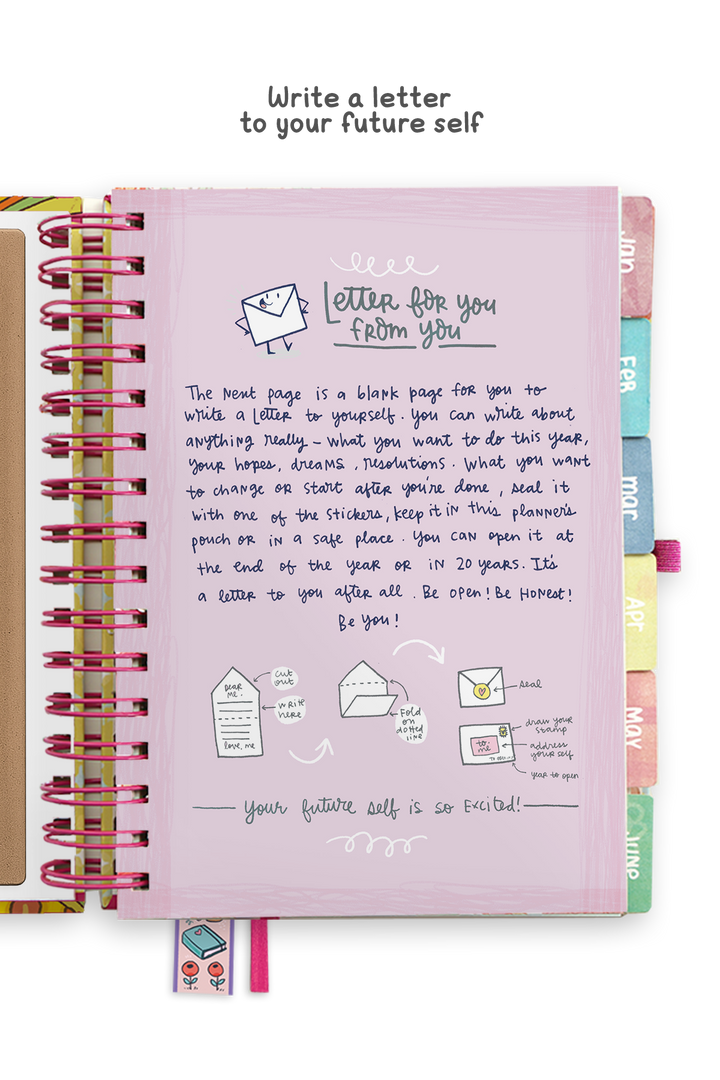 Write a letter
to your future self
Letter for you
from you
The next page is a blank page for you to
write a letter to yourself. You can write about
anything really - what you want to do this year,
your hopes, dreams, resolutions. What you want
to change or start after you're done, seal it
with one of the stickers, keep it in this planner's
pouch or in a safe place. You can open it at
the end of the year or in 20 years. It's
a letter to you after all. Be open! Be Honest!
Be You!
Dear
me,
cut
out
write
here
love, me
Fold
on
dotted
line
seal
to
me
draw your
stamp
address
your self
year to open
Your future self is so Excited!
Jan
Feb
mar
Apr
May
June